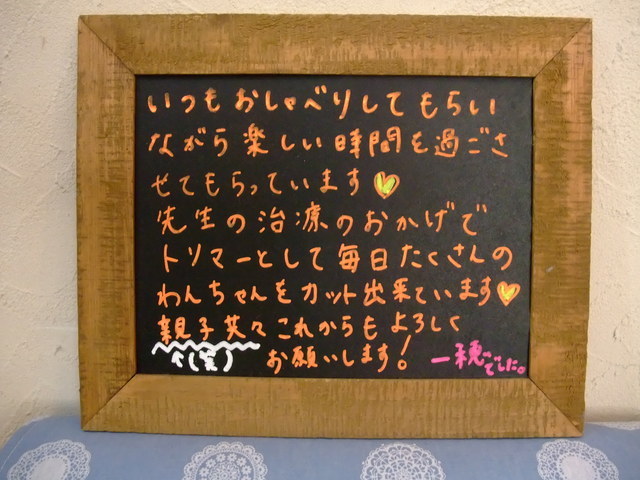 いつもおしゃべりしてもらい
ながら楽しい時間を過ごさ
せてもらっています♡
先生の治療のおかげで
トリマーとして毎日たくさんの
わんちゃんをカット出来ています♡
親子共々これからもよろしく
↑(笑) お願いします! 一穂でした。